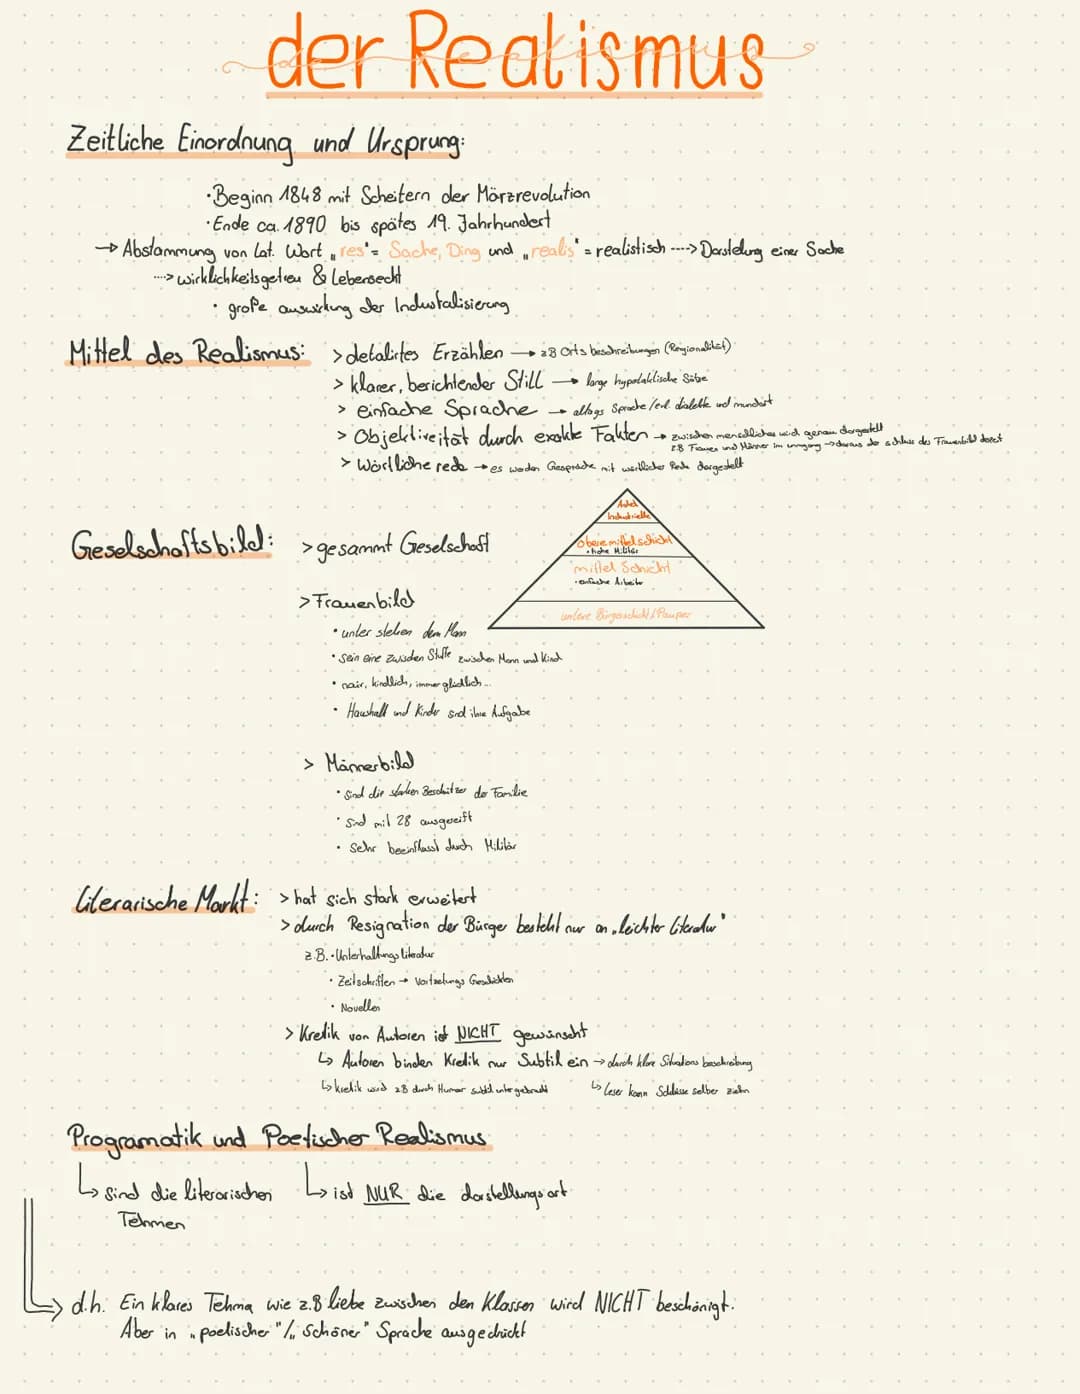 der Realismus
Zeitliche Einordnung und Ursprung:
·Beginn 1848 mit Scheitern der Märzrevolution
·Ende ca. 1890 bis spätes 19. Jahrhundert
→ Abstammung von Lat. Wort „res" = Sache, Ding und „realis" = realistisch ----> Darstellung einer Sache
---> wirklichkeitsgetreu & Lebensecht
· große auswirkung der Industalisierung
Mittel des Realismus: > detalirtes Erzählen → z8 Orts beschreibungen (Regionalität)
> klarer, berichtender Still → lange hypotaktische Sätze
> einfache Sprache → alltags Sprache/evl. dialekte und mundart
> Objektiveität durch exakte Fakten → zwischen menschliches wird genau dargestellt
z.B Frauen und Männer im umgang → daraus der schluss des Frauenbild
> Wörtliche rede → es werden Gespräche mit wörtlicher Rede dargestellt
Adel
Industrielle
obere mittelschicht
· hohe Militär
mittel Schicht
· einfache Arbeiter
untere Bürgerschicht/Pauper
Geselschaftsbild: > gesammt Geselschaft
> Frauenbild
· unter stehen dem Mann
· sein eine zwischen Stuffe zwischen Mann und Kind
· naiv, kindlich, immer glücklich...
· Haushalt und Kinder sind ihre Aufgabe
> Männerbild
· sind die starken Beschützer der Familie
· sind mit 28 ausgereift
· sehr beeinflusst durch Militär
Literarische Markt: > hat sich stark erweitert
> durch Resignation der Bürger besteht nur an „leichter Literatur"
z.B. · Unterhaltungsliteratur
· Zeitschriften → Vortsetungs Geschichten
· Novellen
> Kretik von Autoren ist NICHT gewünscht
↳ Autoren binden Kretik nur Subtil ein → durch klare Situations beschreibung
↳ kretik wird z8 durch Humor subtil untergebracht ↳ Leser kann Schlüsse selber ziehn
Programatik und Poetischer Realismus
↳ sind die literarischen ↳ ist NUR die darstellungsart
Tehmen
→ d.h. Ein klares Tehma wie z.B liebe zwischen den Klassen wird NICHT beschönigt.
Aber in „poetischer"/„schöner" Sprache ausgedrückt